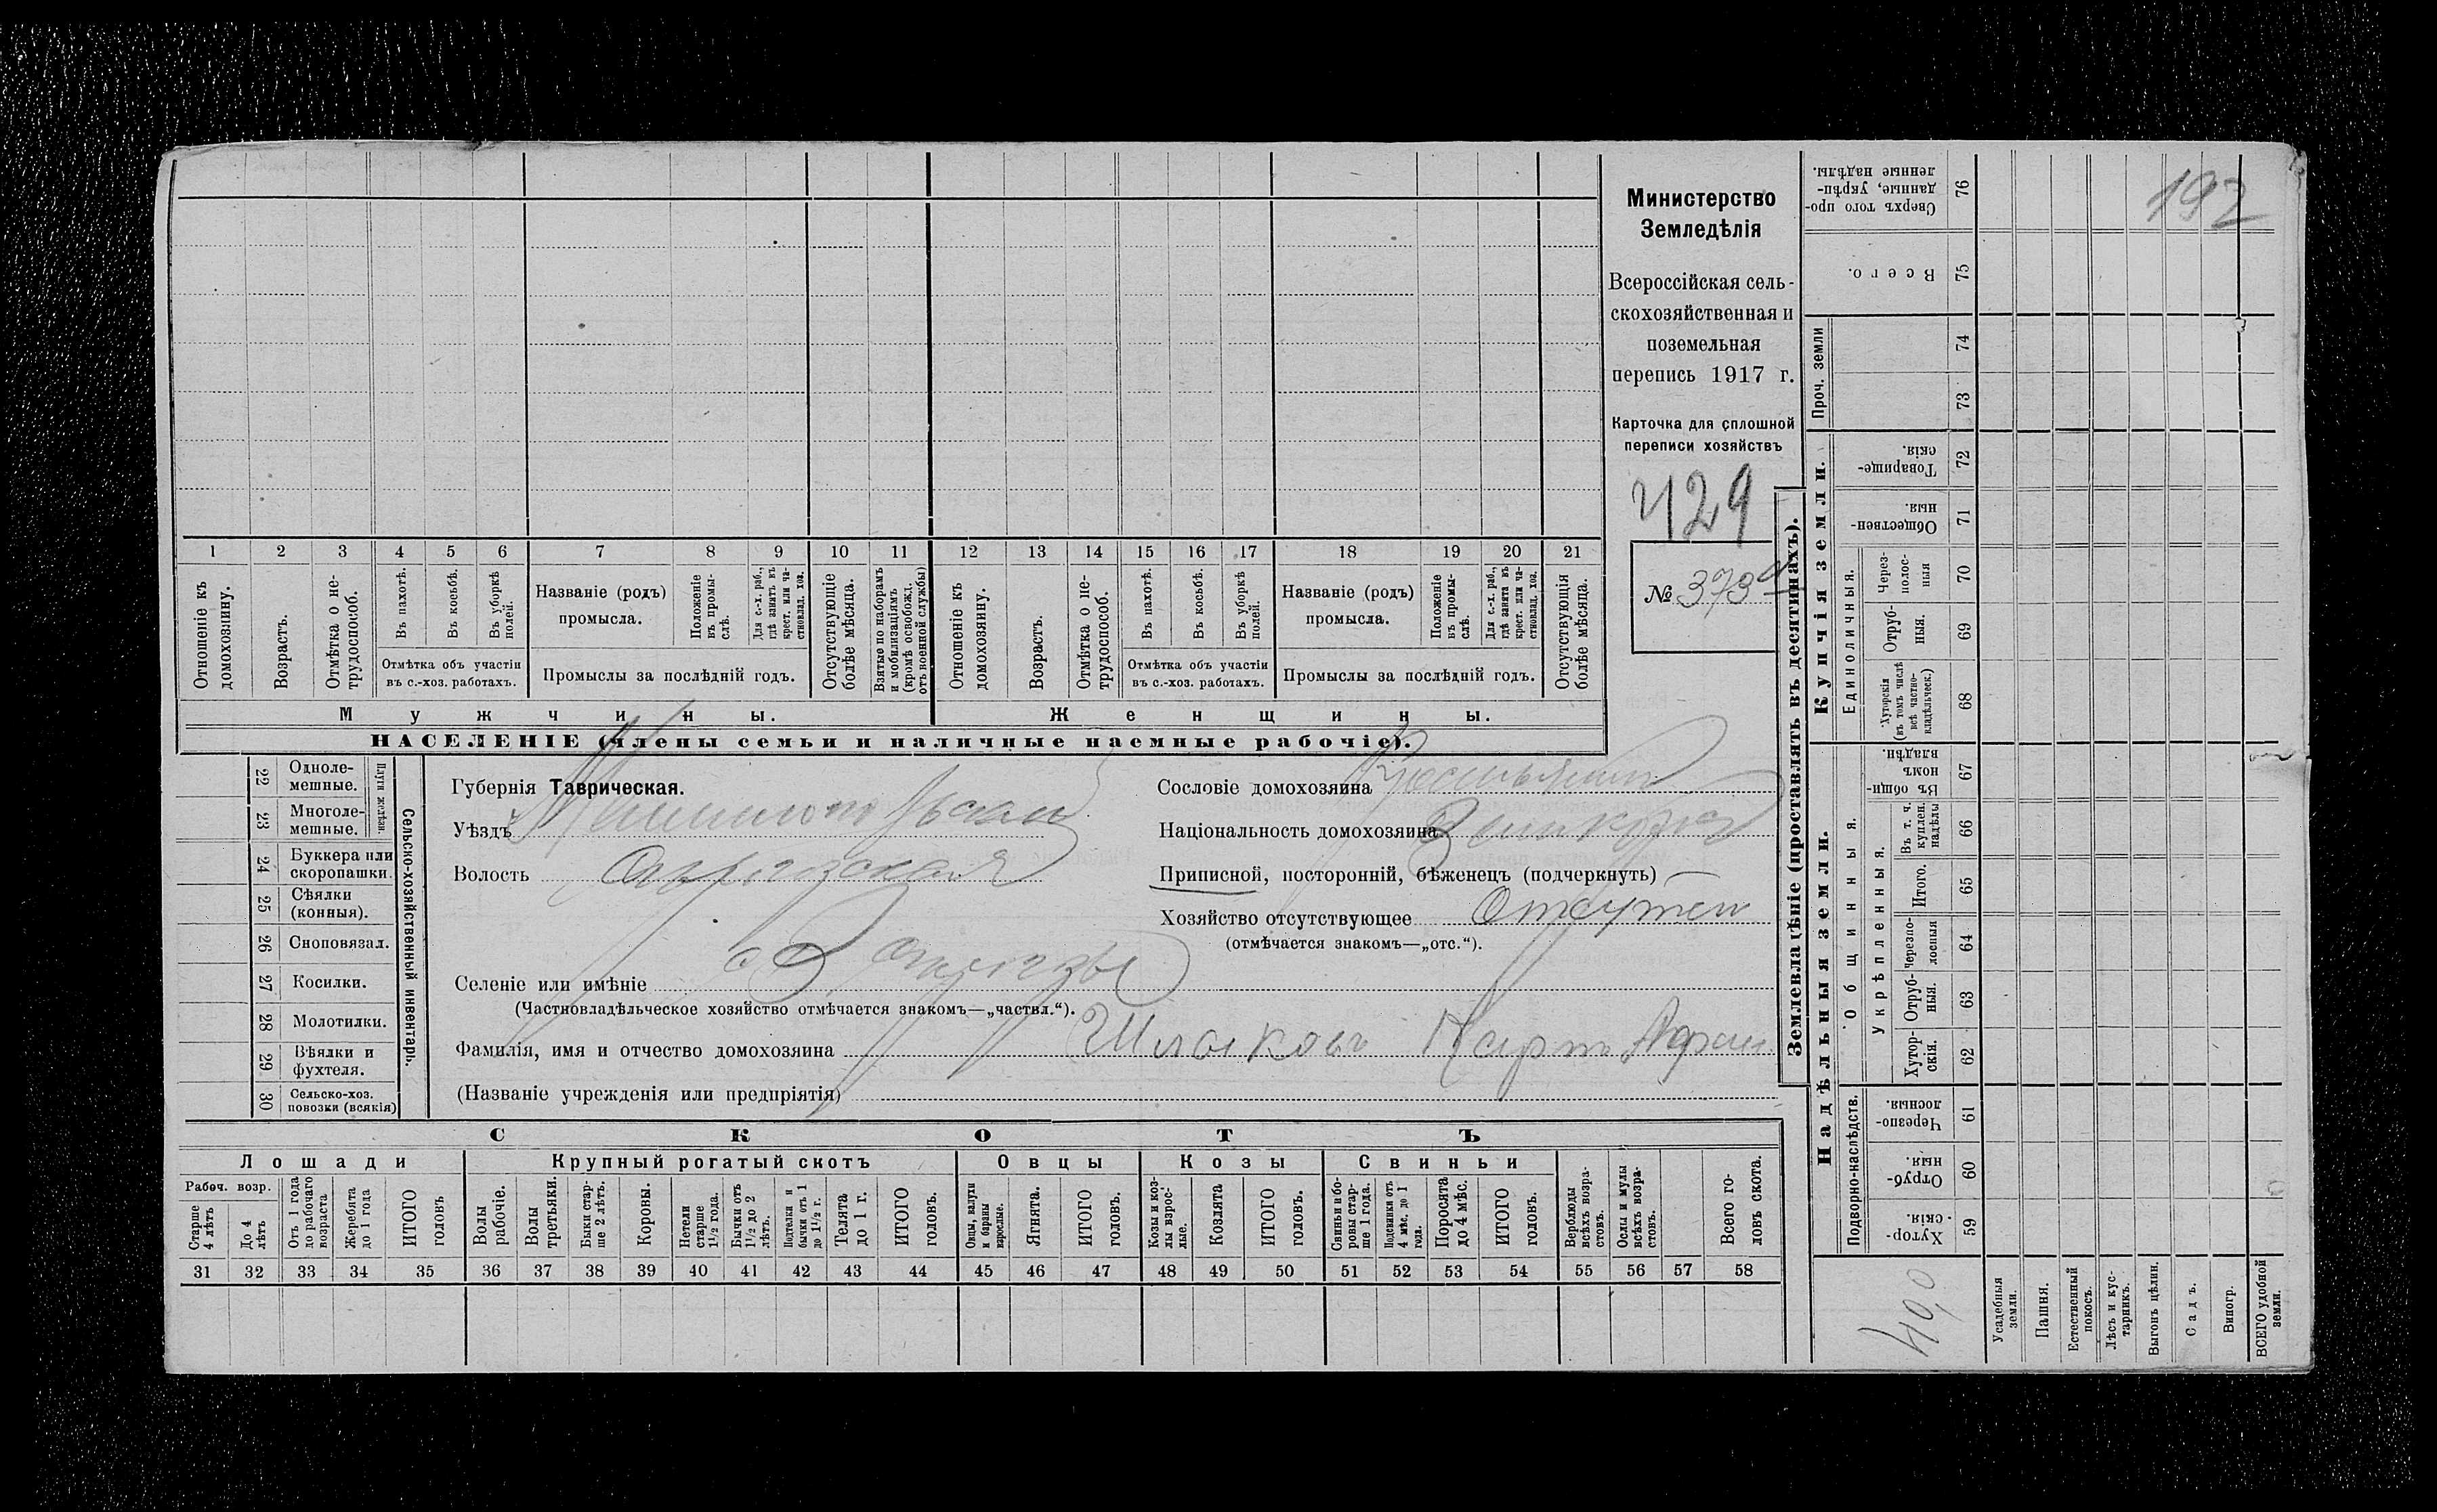 Министерство
Земледѣлія
Всероссійская сель-
скохозяйственная и
поземельная
перепись 1917 г.
Карточка для сплошной
переписи хозяйствъ
429
№ 373
1 2 3 4 5 6 7 8 9 10 11 12 13 14 15 16 17 18 19 20 21
Отношеніе къ домохозяину.
Возрастъ.
Отмѣтка о не-трудоспособ.
Въ пахотѣ.
Въ косьбѣ.
Въ уборкѣ полей.
Отмѣтка объ участіи
въ с.-хоз. работахъ.
Названіе (родъ)
промысла.
Положеніе въ промы-слѣ.
Для с.-х. раб., гдѣ занятъ въ крест. или ча-стновлад. хоз.
Промыслы за послѣдній годъ.
Отсутствующіе болѣе мѣсяца.
Взятые по наборамъ и мобилизаціямъ (кромѣ освобожд. отъ военной службы)
Отношеніе къ домохозяину.
Возрастъ.
Отмѣтка о не-трудоспособ.
Въ пахотѣ.
Въ косьбѣ.
Въ уборкѣ полей.
Отмѣтка объ участіи
въ с.-хоз. работахъ.
Названіе (родъ)
промысла.
Положеніе въ промы-слѣ.
Для с.-х. раб., гдѣ занята въ крест. или ча-стновлад. хоз.
Промыслы за послѣдній годъ.
Отсутствующія болѣе мѣсяца.
Мужчины. Женщины.
НАСЕЛЕНІЕ (члены семьи и наличные наемные рабочіе).
22 Одноле-мешные.
23 Многоле-мешные.
Плуги желѣзн.
24 Буккера или скоропашки.
25 Сѣялки (конныя).
26 Сноповязал.
27 Косилки.
28 Молотилки.
29 Вѣялки и фухтеля.
30 Сельско-хоз. повозки (всякія)
Сельско-хозяйственный инвентарь.
Губернія Таврическая.
Уѣздъ
Волость
Селеніе или имѣніе
(Частновладѣльческое хозяйство отмѣчается знакомъ—„частвл.“).
Фамилія, имя и отчество домохозяина
(Названіе учрежденія или предпріятія)
Сословіе домохозяина
Національность домохозяина
Приписной, посторонній, бѣженецъ (подчеркнуть)
Хозяйство отсутствующее
(отмѣчается знакомъ—„отс.“).
СКОТЪ
Лошади Крупный рогатый скотъ Овцы Козы Свиньи
Рабоч. возр.
Старше 4 лѣтъ
До 4 лѣтъ
Отъ 1 года до рабочаго возраста
Жеребята до 1 года
ИТОГО головъ
Волы рабочіе.
Волы третьяки.
Быки стар-ше 2 лѣтъ.
Коровы.
Нетели старше 1½ года.
Бычки отъ 1½ до 2 лѣтъ.
Подтелки и бычки отъ 1 до 1½ г.
Телята до 1 г.
ИТОГО головъ.
Овцы, валухи и бараны взрослые.
Ягнята.
ИТОГО головъ.
Козы и коз-лы взрос-лые.
Козлята
ИТОГО головъ.
Свиньи и бо-ровы стар-ше 1 года.
Подсвинки отъ 4 мѣс. до 1 года.
Поросята до 4 мѣс.
ИТОГО головъ.
Верблюды всѣхъ возра-стовъ.
Ослы и мулы всѣхъ возра-стовъ.
Всего го-ловъ скота.
31 32 33 34 35 36 37 38 39 40 41 42 43 44 45 46 47 48 49 50 51 52 53 54 55 56 57 58
Землевладѣніе (проставлять въ десятинахъ).
Надѣльныя земли. Купчія земли.
Проч. земли
Подворно-наслѣдств.
Общинныя.
Укрѣпленныя.
Единоличныя.
Хутор-скія. 59
Отруб-ныя. 60
Черезпо-лосныя. 61
Хутор-скія. 62
Отруб-ныя. 63
Черезпо-лосныя 64
Итого. 65
Въ т. ч. куплен. надѣлы 66
Въ общин-номъ владѣн. 67
Хуторскія (въ томъ числѣ всѣ частно-владѣльческ.) 68
Отруб-ныя. 69
Через-полос-ныя 70
Обществен-ныя. 71
Товарище-скія. 72
73
74
Всего. 75
Сверхъ того про-данные, укрѣп-ленные надѣлы. 76
192
Усадебныя земли.
Пашня.
Естественный покосъ.
Лѣсъ и кус-тарникъ.
Выгонъ цѣлин.
Садъ.
Виногр.
ВСЕГО удобной земли.